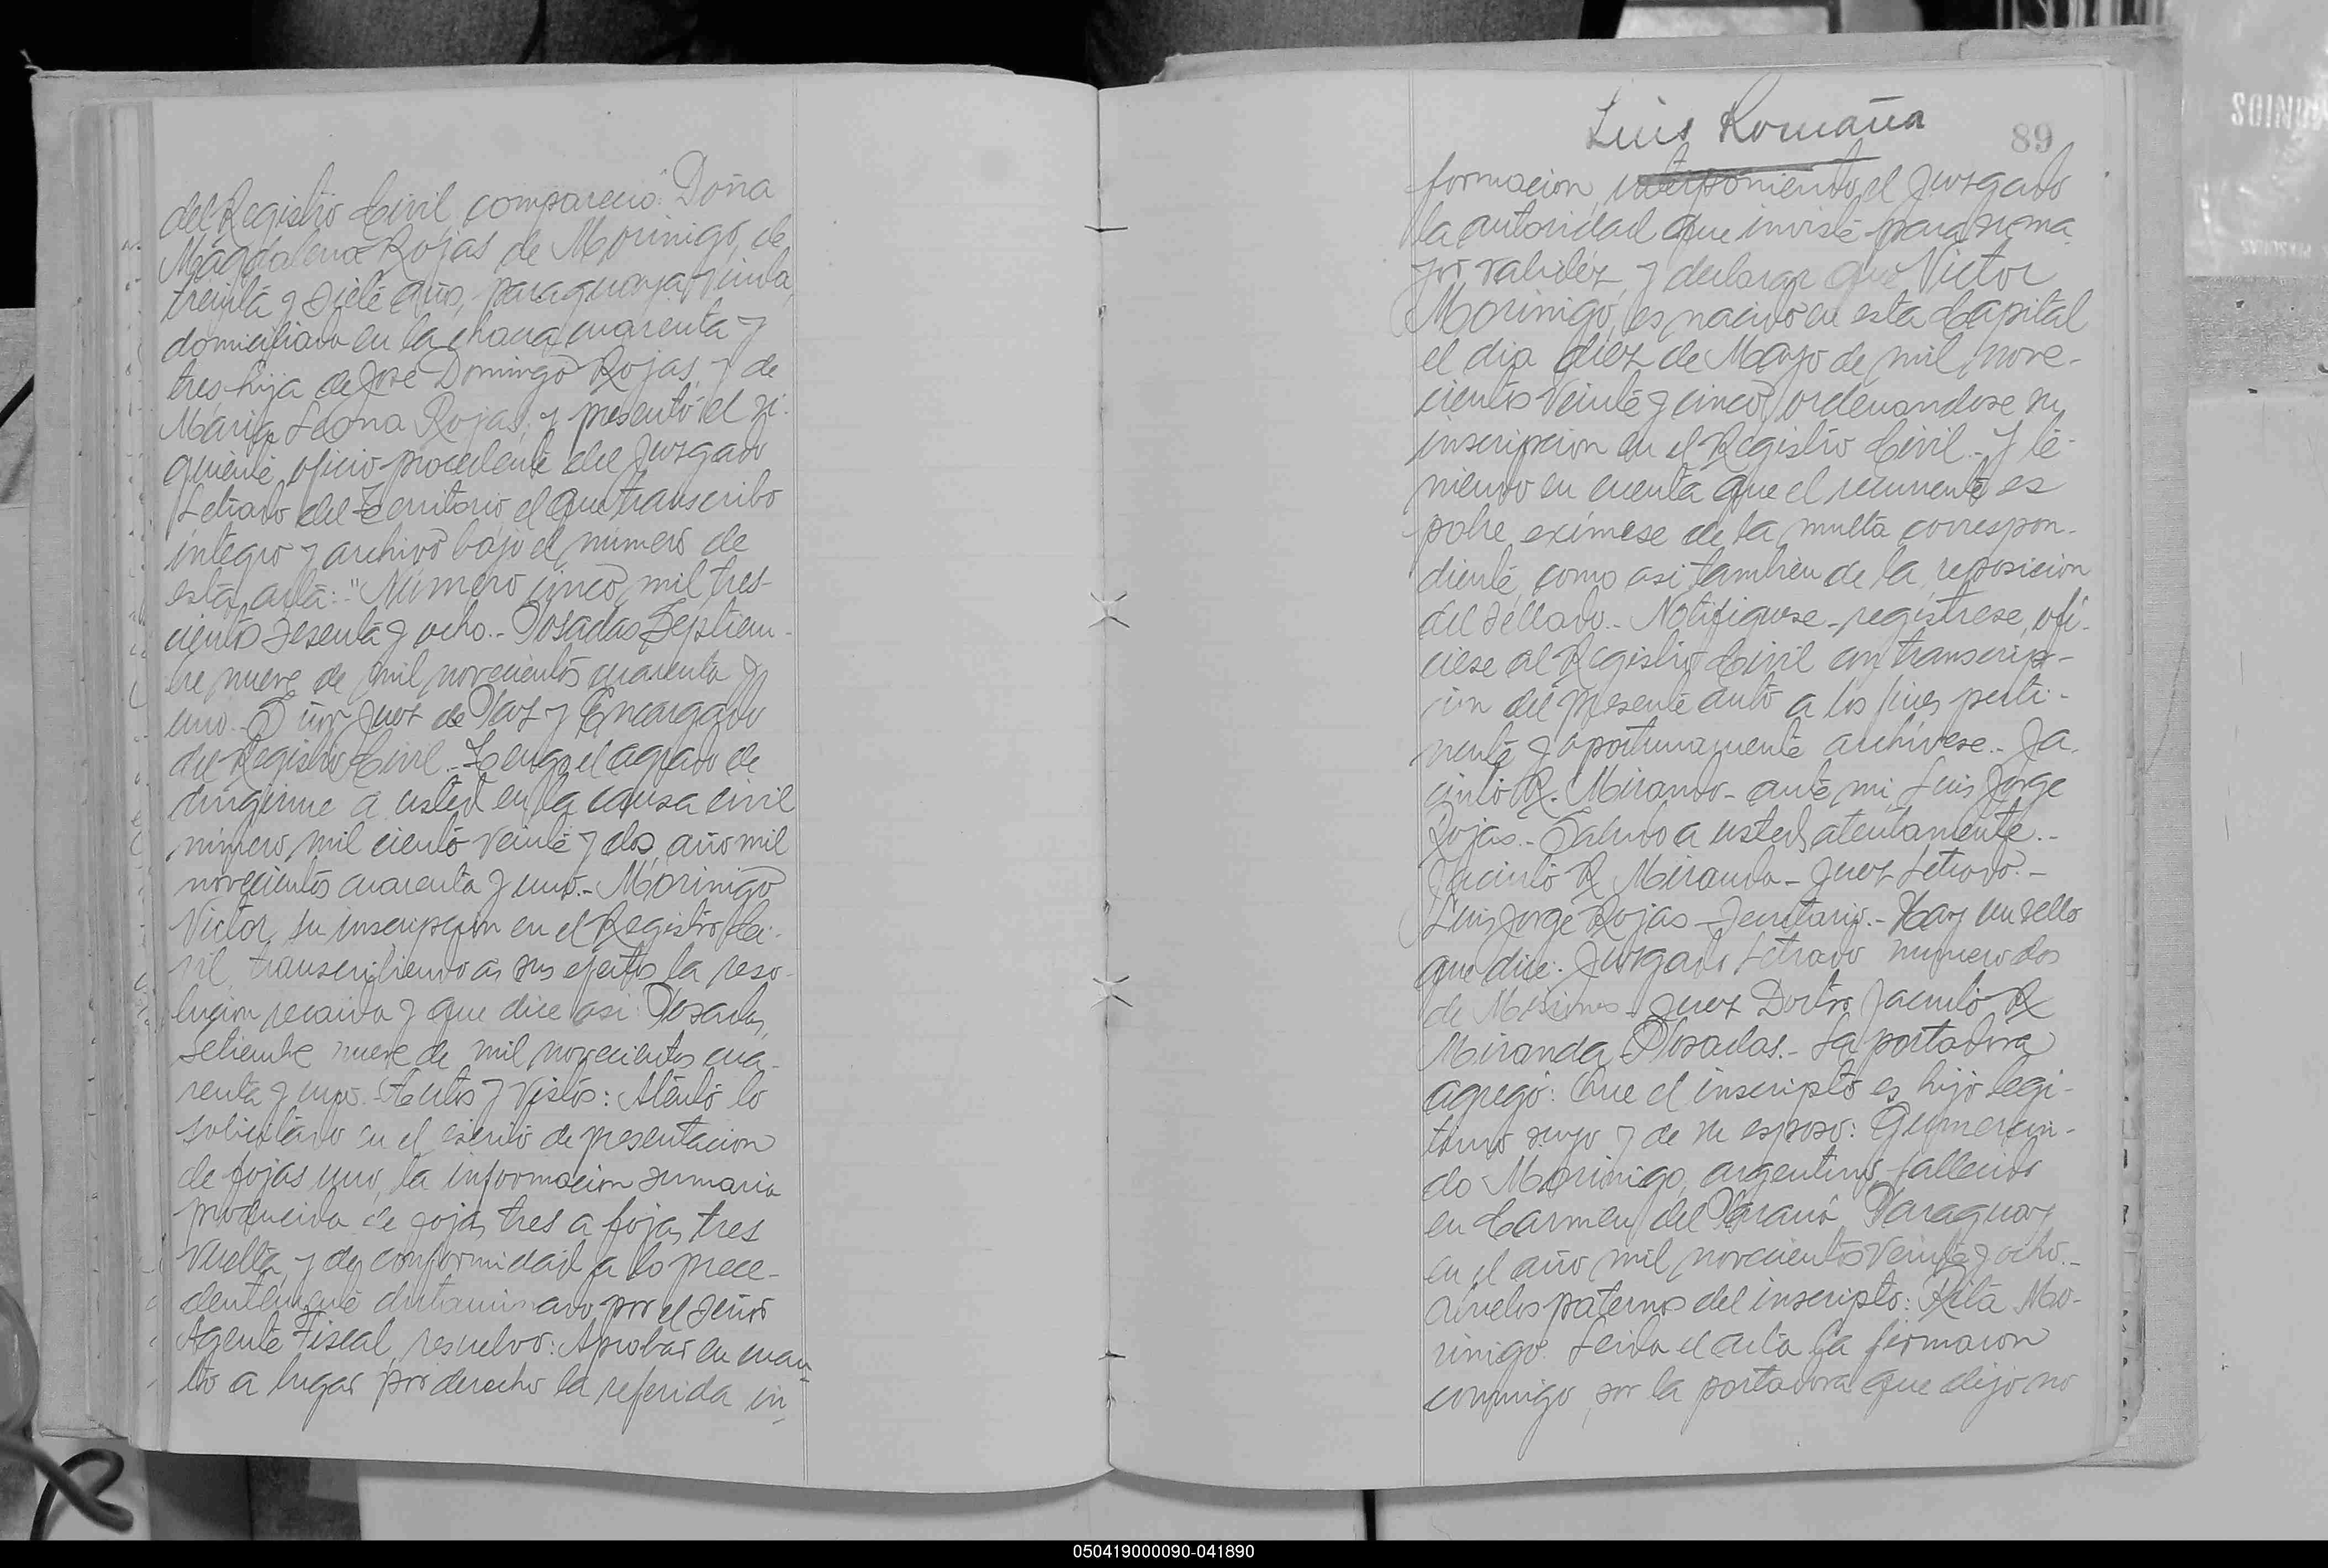 del Registro Civil, compareció: Doña
Magdalena Rojas de Morinigo, de
treinta y siete años, paraguaya, viuda,
domiciliada en la chacra cuarenta y
tres hija de José Domingo Rojas, y de
Maria Leona Rojas; y presentó el si-
guiente oficio procedente del Juzgado
Letrado del Territorio el que transcribo
integro y archivo bajo el número de
esta acta: "Número cinco mil tres-
cientos sesenta y ocho.- Posadas Septiem-
bre nueve de mil novecientos cuarenta y
uno.- Señor Juez de Paz y Encargado
del Registro Civil.- Tengo el agrado de
dirigirme a usted en la causa civil
número mil ciento veinte y dos, año mil
novecientos cuarenta y uno.- Morinigo
Victor, su inscripcion en el Registro Ci-
vil, transcribiendo a sus efectos la reso-
lucion recaida y que dice asi: Posadas,
setiembre nueve de mil novecientos cua-
renta y uno.- Autos y Vistos: Atento lo
solicitado en el escrito de presentacion
de fojas uno, la informacion sumaria
producida de fojas tres a fojas tres
vuelta, y de conformidad a lo prece-
dentemente dictaminado por el señor
Agente Fiscal, resuelvo: Aprobar en cuan-
to a lugar por derecho la referida in-
Luis Romaña
89
formacion, interponiendo el Juzgado
la autoridad que inviste para su ma-
yor validéz, y declarar que Victor
Morinigo, es nacido en esta Capital
el dia diez de Mayo de mil nove-
cientos veinte y cinco, ordenandose su
inscripcion en el Registro Civil.- Y te-
niendo en cuenta que el recurrente es
pobre, exímese de la multa correspon-
diente, como asi tambien de la reposicion
del sellado.- Notifiquese- registrese, ofi-
ciese al Registro Civil con transcrip-
cion del presente auto a los fines perti-
nente y oportunamente archivese.- Ja-
cinto R. Miranda- ante mi, Luis Jorge
Rojas.- Saludo a usted atentamente.-
Jacinto R Miranda- Juez Letrado.-
Luis Jorge Rojas- Secretario.- Hay un sello
que dice: Juzgado Letrado numero dos
de Misiones- Juez Doctor Jacinto R
Miranda- Posadas.- La portadora
agregó: Que el inscripto es hijo legi-
timo suyo y de su esposo: Gumercin-
do Morinigo, argentino, fallecido
en Carmen del Paraná Paraguay
en el año mil novecientos veinte y ocho.-
abuelos paternos del inscripto: Rita Mo-
rinigo. Leida el acta la firmaron
conmigo, por la portadora que dijo no
050419000090-041890